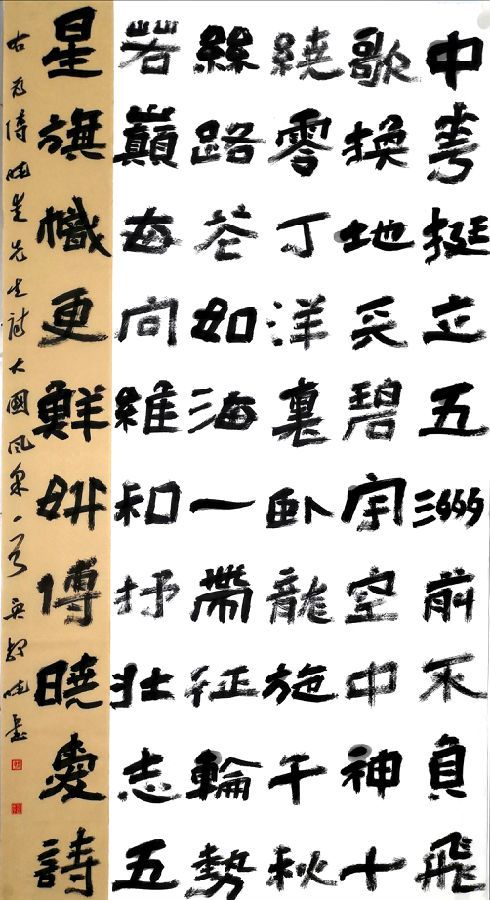 中華挺立五洲前不負飛
歌換地天碧宇空中神十
繞零丁洋裏臥龍施千秋
絲路花如海一帶征輪勢
若巔每向維和抒壯志五
星旗幟更鮮妍傅曉愛詩
右为傅曉愛先生詩大國風采一首